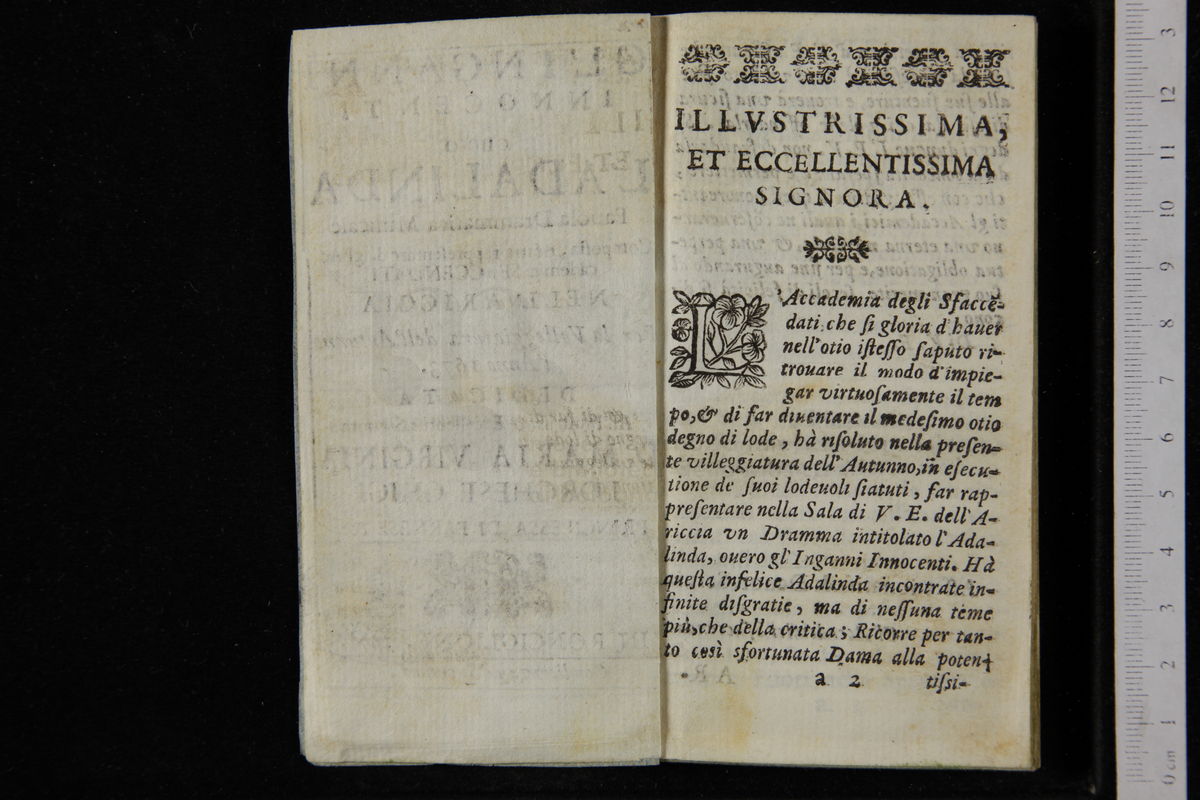 ILLVSTRISSIMA,
ET ECCELLENTISSIMA
SIGNORA.
L'Accademia degli Sfaccē-
dati, che ſi gloria d'hauer
nell'otio iſteſſo ſaputo ri-
trouare il modo d'impie-
gar virtuoſamente il tem
po, & di far diuentare il medeſimo otio
degno di lode, hà riſoluto nella preſen-
te villeggiatura dell'Autunno, in eſecu-
tione de' ſuoi lodeuoli ſtatuti, far rap-
preſentare nella Sala di V. E. dell'A-
riccia vn Dramma intitolato l'Ada-
linda, ouero gl'Inganni Innocenti. Hà
queſta infelice Adalinda incontrate in-
finite diſgratie, ma di neſſuna teme
più, che della critica; Ricorre per tan-
to così sfortunata Dama alla poten-
a 2 tiſſi-
3
12
11
10
9
8
7
6
5
4
3
2
1
0 cm